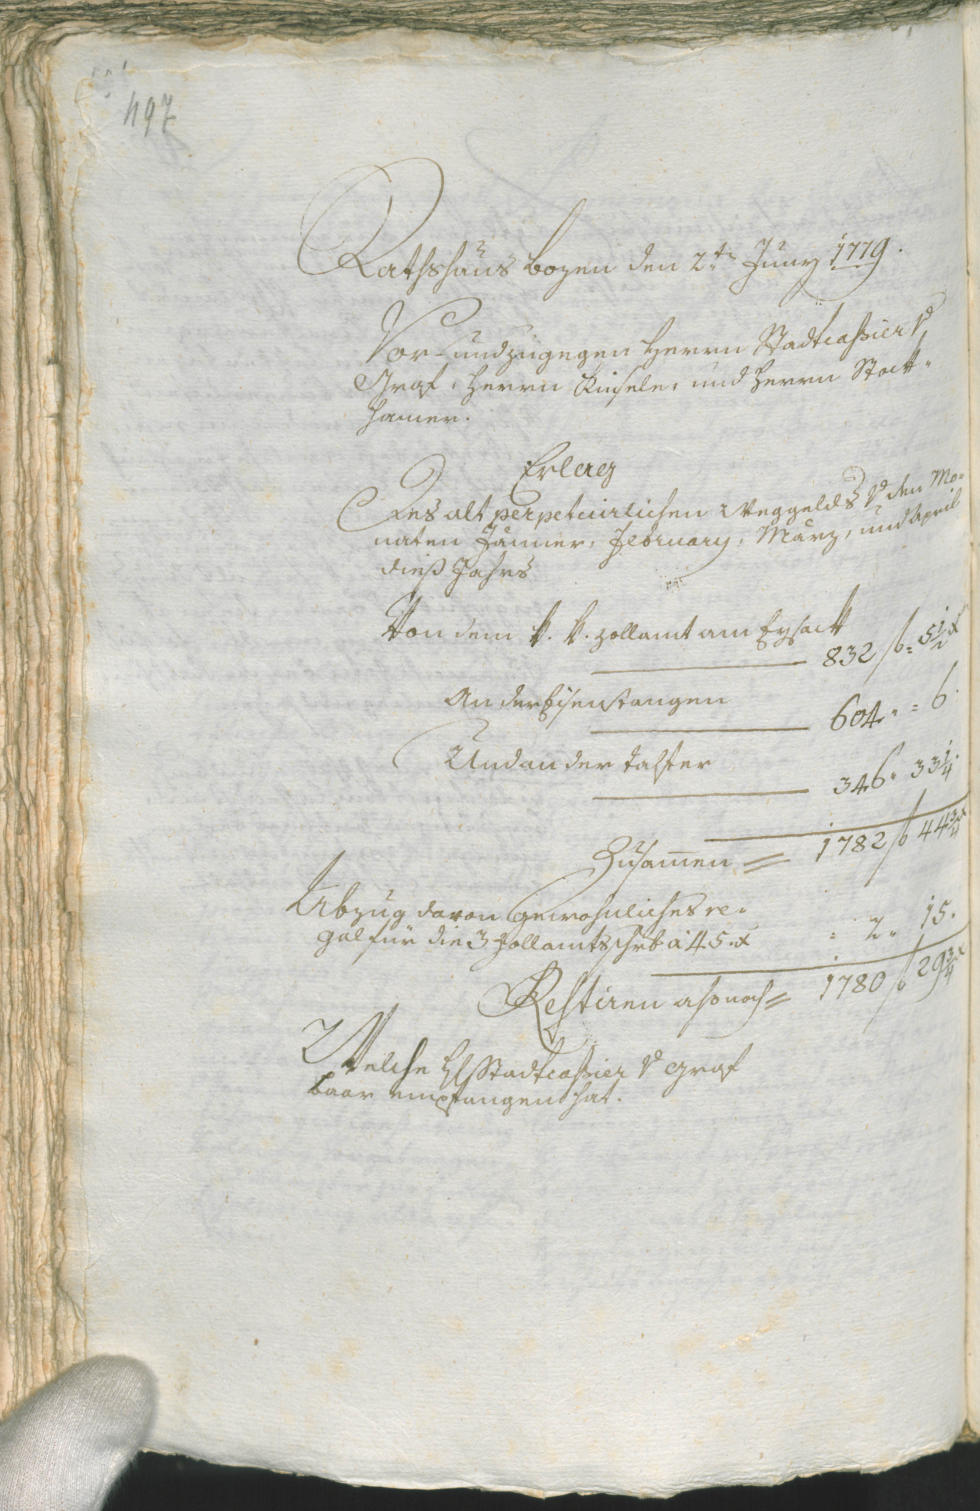 497
Rathshaus Bozen den 2ten Juny 1779.
Vor- und zugegen Herrn Stadtcassier v
Graf, Herrn Kinsele, und Herrn Stock-
hamer.
Erlag
Des alt perpetuirlichen Weggelds v den Mo-
naten Jänner, February, März, und April
dieß Jahrs
Von dem k. k. Zollamt am Eysack
832 f 5 1/2 x
An der Eisenstangen
604 " = 6.
Und an der Talfer
346 " 33 1/4.
Zusammen = 1782 f 44 3/4 x
Abzug davon gewohnliches re-
gal für die 3 Zollamtschrb à 45 x = 2 " 15.
Restiren also noch = 1780 f 29 3/4
Welche H Stadtcassier v Graf
baar empfangen hat.